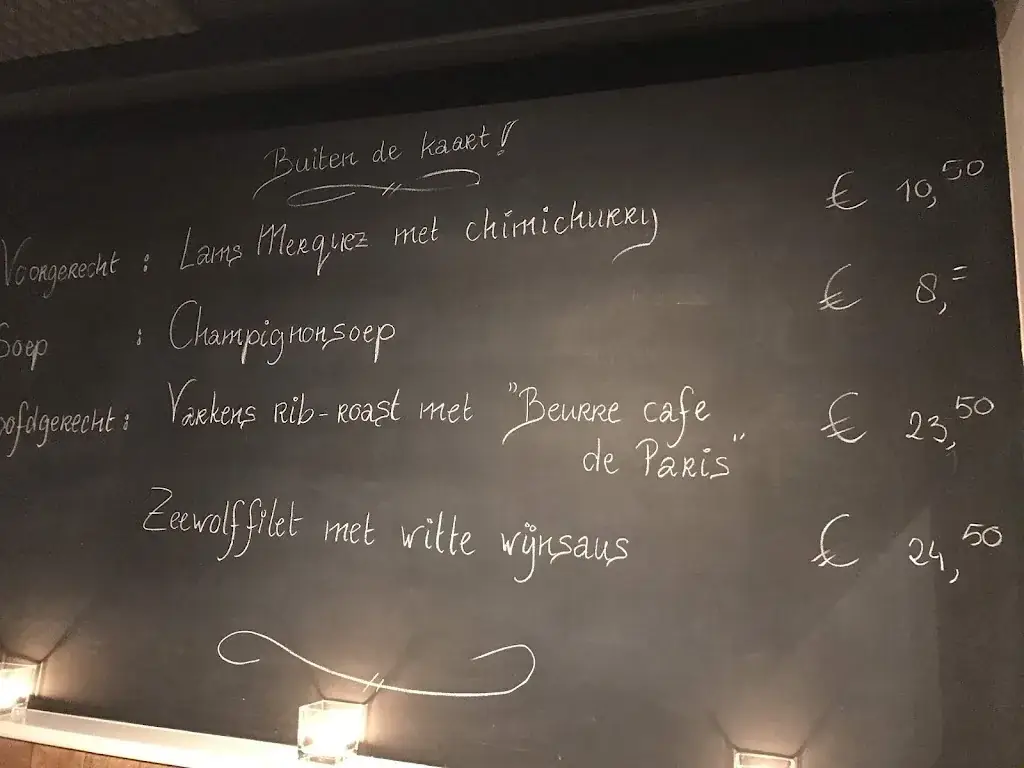 Buiten de kaart!
Voorgerecht : Lams Merquez met chimichurry € 10,50
Soep : Champignonsoep € 8,=
oofdgerecht : Varkens rib-roast met "Beurre cafe € 23,50
de Paris"
Zeewolffilet met witte wijnsaus € 24,50